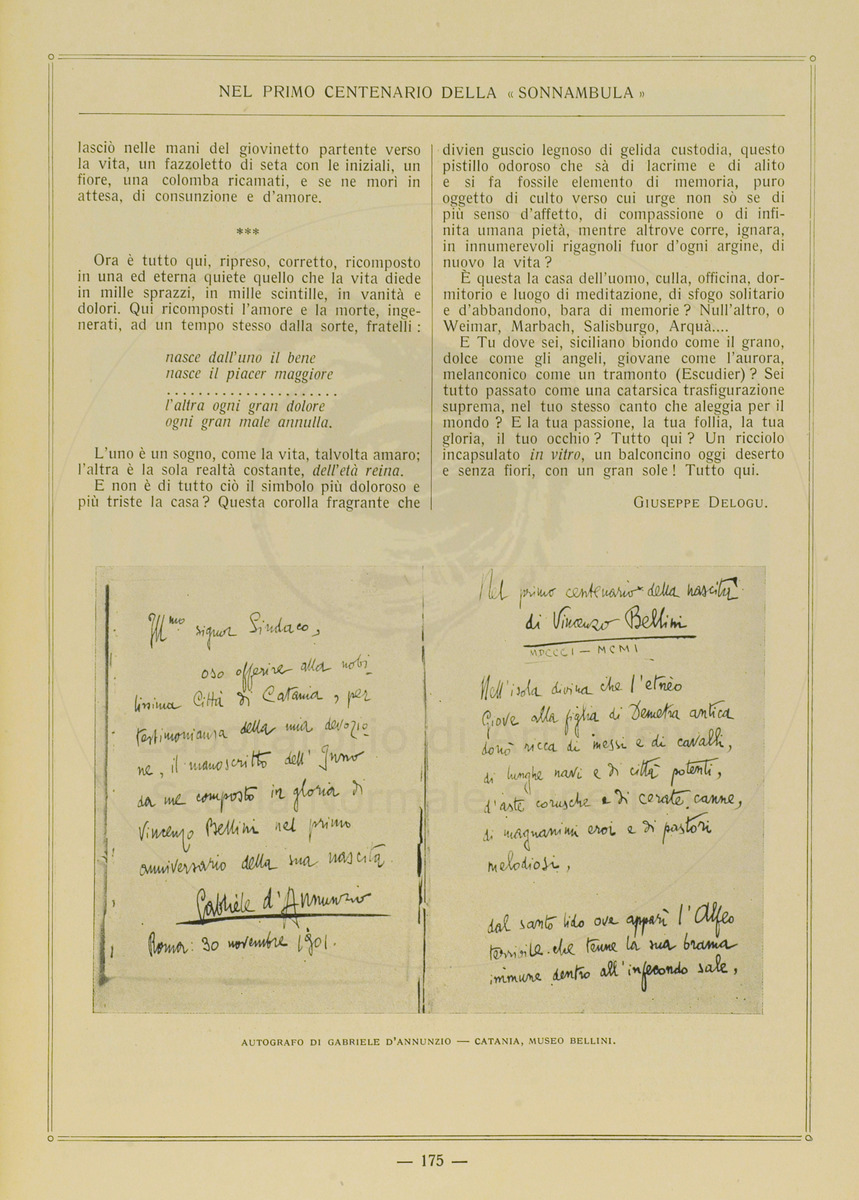 NEL PRIMO CENTENARIO DELLA « SONNAMBULA »
lasciò nelle mani del giovinetto partente verso
la vita, un fazzoletto di seta con le iniziali, un
fiore, una colomba ricamati, e se ne morì in
attesa, di consunzione e d'amore.
***
Ora è tutto qui, ripreso, corretto, ricomposto
in una ed eterna quiete quello che la vita diede
in mille sprazzi, in mille scintille, in vanità e
dolori. Qui ricomposti l'amore e la morte, inge-
nerati, ad un tempo stesso dalla sorte, fratelli :
nasce dall'uno il bene
nasce il piacer maggiore
. . . . . . . . . . . . . . . . . . . . . .
l'altra ogni gran dolore
ogni gran male annulla.
L'uno è un sogno, come la vita, talvolta amaro;
l'altra è la sola realtà costante, dell'età reina.
E non è di tutto ciò il simbolo più doloroso e
più triste la casa? Questa corolla fragrante che
divien guscio legnoso di gelida custodia, questo
pistillo odoroso che sà di lacrime e di alito
e si fa fossile elemento di memoria, puro
oggetto di culto verso cui urge non sò se di
più senso d'affetto, di compassione o di infi-
nita umana pietà, mentre altrove corre, ignara,
in innumerevoli rigagnoli fuor d'ogni argine, di
nuovo la vita ?
È questa la casa dell'uomo, culla, officina, dor-
mitorio e luogo di meditazione, di sfogo solitario
e d'abbandono, bara di memorie ? Null'altro, o
Weimar, Marbach, Salisburgo, Arquà....
E Tu dove sei, siciliano biondo come il grano,
dolce come gli angeli, giovane come l'aurora,
melanconico come un tramonto (Escudier) ? Sei
tutto passato come una catarsica trasfigurazione
suprema, nel tuo stesso canto che aleggia per il
mondo ? E la tua passione, la tua follia, la tua
gloria, il tuo occhio ? Tutto qui ? Un ricciolo
incapsulato in vitro, un balconcino oggi deserto
e senza fiori, con un gran sole ! Tutto qui.
GIUSEPPE DELOGU.
Ill.mo signor Sindaco,
oso offerire alla nobi
lissima Città di Catania, per
testimonianza della mia devozio
ne, il manoscritto dell' Inno
da me composto in gloria di
Vincenzo Bellini nel primo
anniversario della sua nascita.
Gabriele d'Annunzio
Roma: 30 novembre 1901.
Nel primo centenario della nascita
di Vincenzo Bellini
MDCCCI — MCMI
Nell'isola divina che l'etnèo
Giove alla figlia di Demetra antica
donò ricca di messi e di cavalli,
di lunghe navi e di città potenti,
d'aste corusche e di cerate canne,
di magnanimi eroi e di pastori
melodiosi,
dal santo lido ove apparì l'Alfeo
terribile che tenne la sua brama
immune dentro all'infecondo sale,
AUTOGRAFO DI GABRIELE D'ANNUNZIO — CATANIA, MUSEO BELLINI.
— 175 —